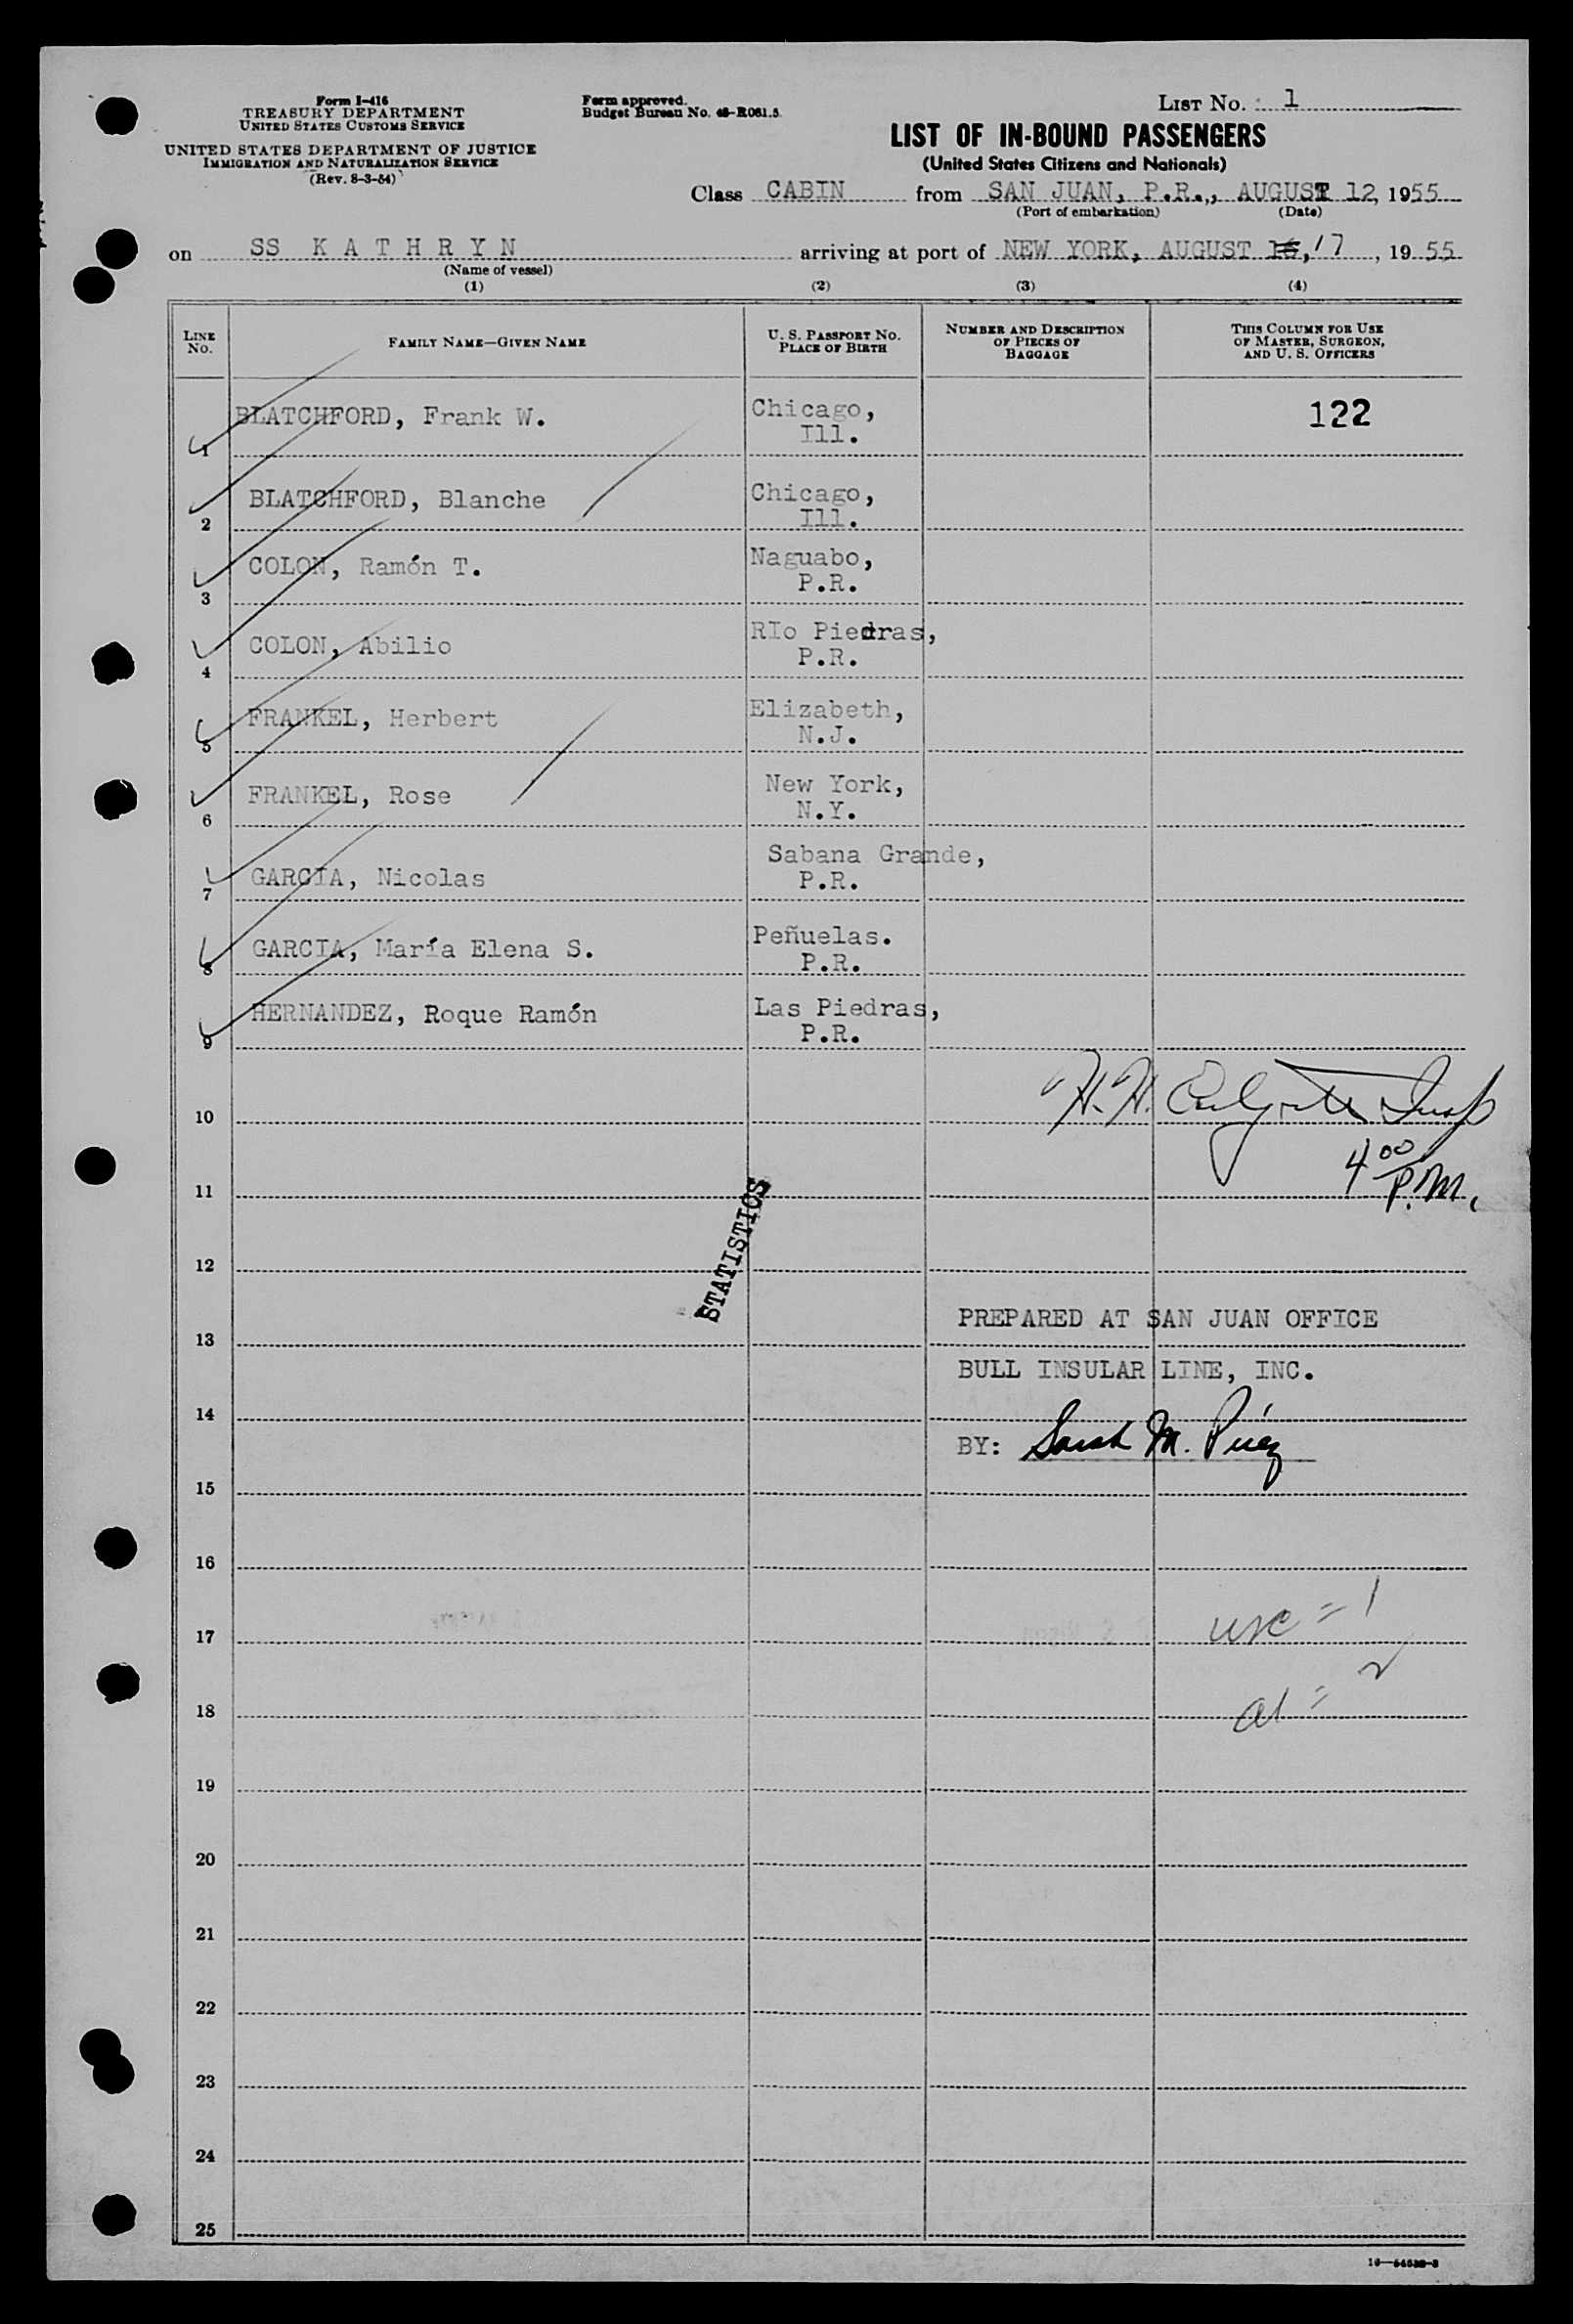 Form I-416
TREASURY DEPARTMENT
UNITED STATES CUSTOMS SERVICE
UNITED STATES DEPARTMENT OF JUSTICE
IMMIGRATION AND NATURALIZATION SERVICE
(Rev. 8-3-54)
Form approved.
Budget Bureau No. 43-R081.5.
LIST NO. 1
LIST OF IN-BOUND PASSENGERS
(United States Citizens and Nationals)
Class CABIN from SAN JUAN, P.R., AUGUST 12, 1955
(Port of embarkation) (Date)
on SS K A T H R Y N arriving at port of NEW YORK, AUGUST 16, 17, 1955
(Name of vessel)
(1) (2) (3) (4)
LINE NO. FAMILY NAME—GIVEN NAME U. S. PASSPORT NO. PLACE OF BIRTH NUMBER AND DESCRIPTION OF PIECES OF BAGGAGE THIS COLUMN FOR USE OF MASTER, SURGEON, AND U. S. OFFICERS
1 BLATCHFORD, Frank W. Chicago, Ill. 122
2 BLATCHFORD, Blanche Chicago, Ill.
3 COLON, Ramón T. Naguabo, P.R.
4 COLON, Abilio RIo Piedras, P.R.
5 FRANKEL, Herbert Elizabeth, N.J.
6 FRANKEL, Rose New York, N.Y.
7 GARCIA, Nicolas Sabana Grande, P.R.
8 GARCIA, María Elena S. Peñuelas. P.R.
9 HERNANDEZ, Roque Ramón Las Piedras, P.R.
10 H. H.
11 4 00 P.M.
STATISTICS
12
13 PREPARED AT SAN JUAN OFFICE
14 BULL INSULAR LINE, INC.
15 BY: Sarah M.
16
17 usc = 1
18 al = 2
19
20
21
22
23
24
25